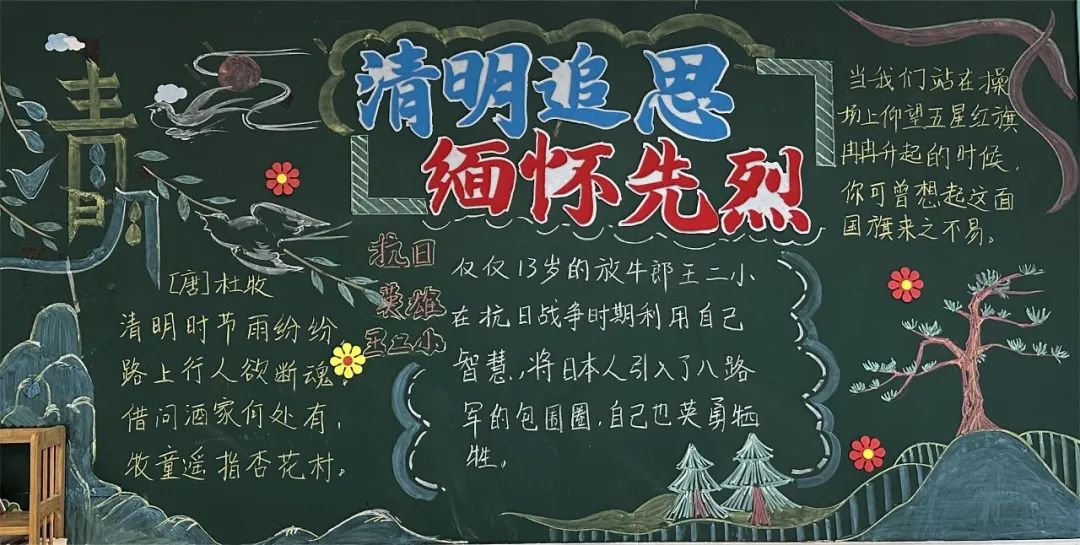 清
明
清明追思
缅怀先烈
[唐]杜牧
清明时节雨纷纷
路上行人欲断魂。
借问酒家何处有,
牧童遥指杏花村。
抗日
英雄
王二小
仅仅13岁的放牛郎王二小
在抗日战争时期利用自己
智慧,将日本人引入了八路
军的包围圈,自己也英勇牺
牲。
当我们站在操
场上仰望五星红旗
冉冉升起的时候,
你可曾想起这面
国旗来之不易。